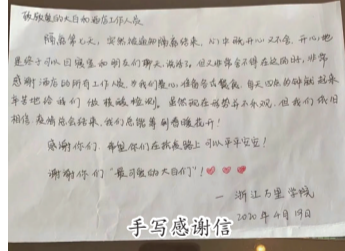 致敬爱的大白和酒店工作人员
隔离第七天，突然被通知隔离结束，心中既开心又不舍，开心地
是终于可以回寝室和朋友们聊天、谈话了，但又非常舍不得在这的时，非常
感谢酒店的所有工作人员，为我们费心，准备各式餐饭，每天四点的钟就起来
辛苦地给我们做核酸检测。虽然现在形势并不乐观，但我们依旧
相信疫情总会结束，我们总能等到春暖花开！
感谢你们，希望你们在抗疫路上可以平平安安！
谢谢你们“最可爱的大白们”！
—浙江万里学院
2020年4月19日
手写感谢信